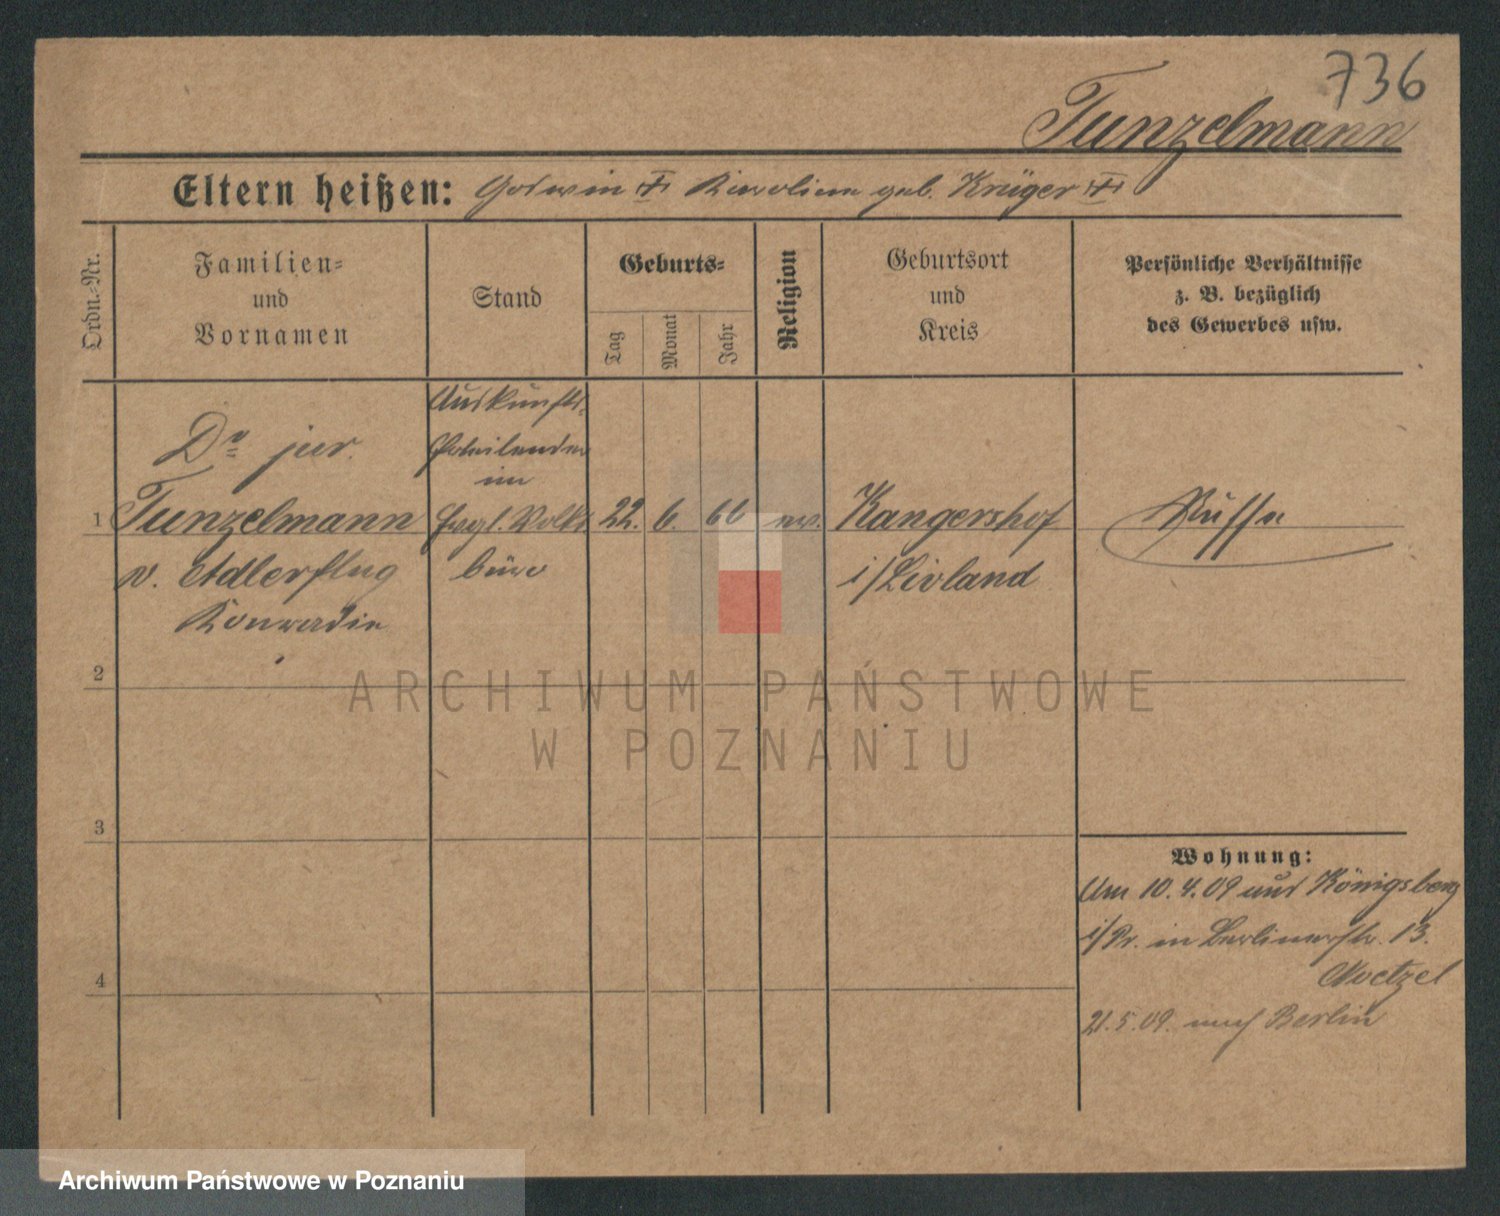 736
Tunzelmann
Eltern heißen: Gotwin † Karoline geb. Krüger †
Ordn.-Nr.
Familien-
und
Vornamen
Stand
Geburts-
Tag
Monat
Jahr
Religion
Geburtsort
und
Kreis
Persönliche Verhältnisse
z. B. bezüglich
des Gewerbes usw.
Auskunfts-
Dr jur.
im
1 Tunzelmann 22. 6. 60 ev. Kangershof Russe
v. Adlerflug büro i/Livland
Konradin
2
ARCHIWUM PAŃSTWOWE
W POZNANIU
3
Wohnung:
Am 10.4.09 aus Königsberg
i/Pr. in Berlinerstr. 13.
4
21.5.09. nach Berlin
Archiwum Państwowe w Poznaniu